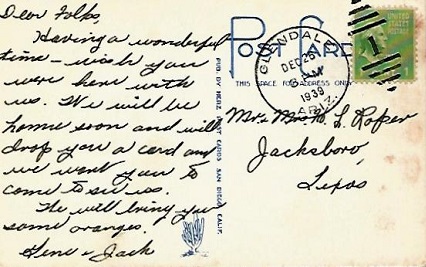 Dear Folks,
Having a wonderful
time - wish you
were here with
us. We will be
home soon and will
drop you a card and
we want you to
come to see us.
We will bring you
some oranges.
Gene & Jack
PUB. BY HERZ POST CARDS SAN DIEGO, CALIF.
POST CARD
THIS SPACE FOR ADDRESS ONLY
GLENDALE
DEC 26
8 AM
1939
ARIZ.
UNITED STATES
1
1
Mr & Mrs L Roper
Jacksboro,
Texas